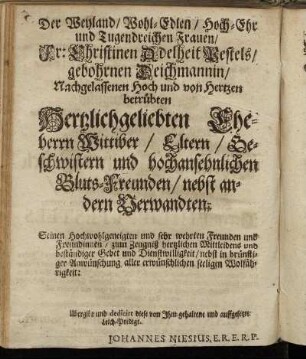 Der Weyland/ Wohl-Edlen/ Hoch-Ehr
und Tugendreichen Frauen/
Fr: Christinen Adelheit Pestels/
gebohrnen Deichmannin/
Nachgelassenen Hoch und von Hertzen
betrübten
Hertzlichgeliebten Ehe-
herrn Wittiber/ Eltern/ Ge-
schwistern und hochansehnlichen
Bluts-Freunden/ nebst an-
dern Verwandten:
Seinen Hochwohlgeneigten und sehr wehrten Freunden und
Freundinnen/ zum Zeugniß hertzlichen Mittleidens und
beständiger Gebet und Dienstwilligkeit/ nebst in brünsti-
ger Anwünschung aller erwünschlichen seeligen Wolfäh-
rigkeit:
und dediciret diese von Ihm gehaltene und auffgesetzte
Leich-Predigt.
JOHANNES NIESIUS, E. R. E. R. P.